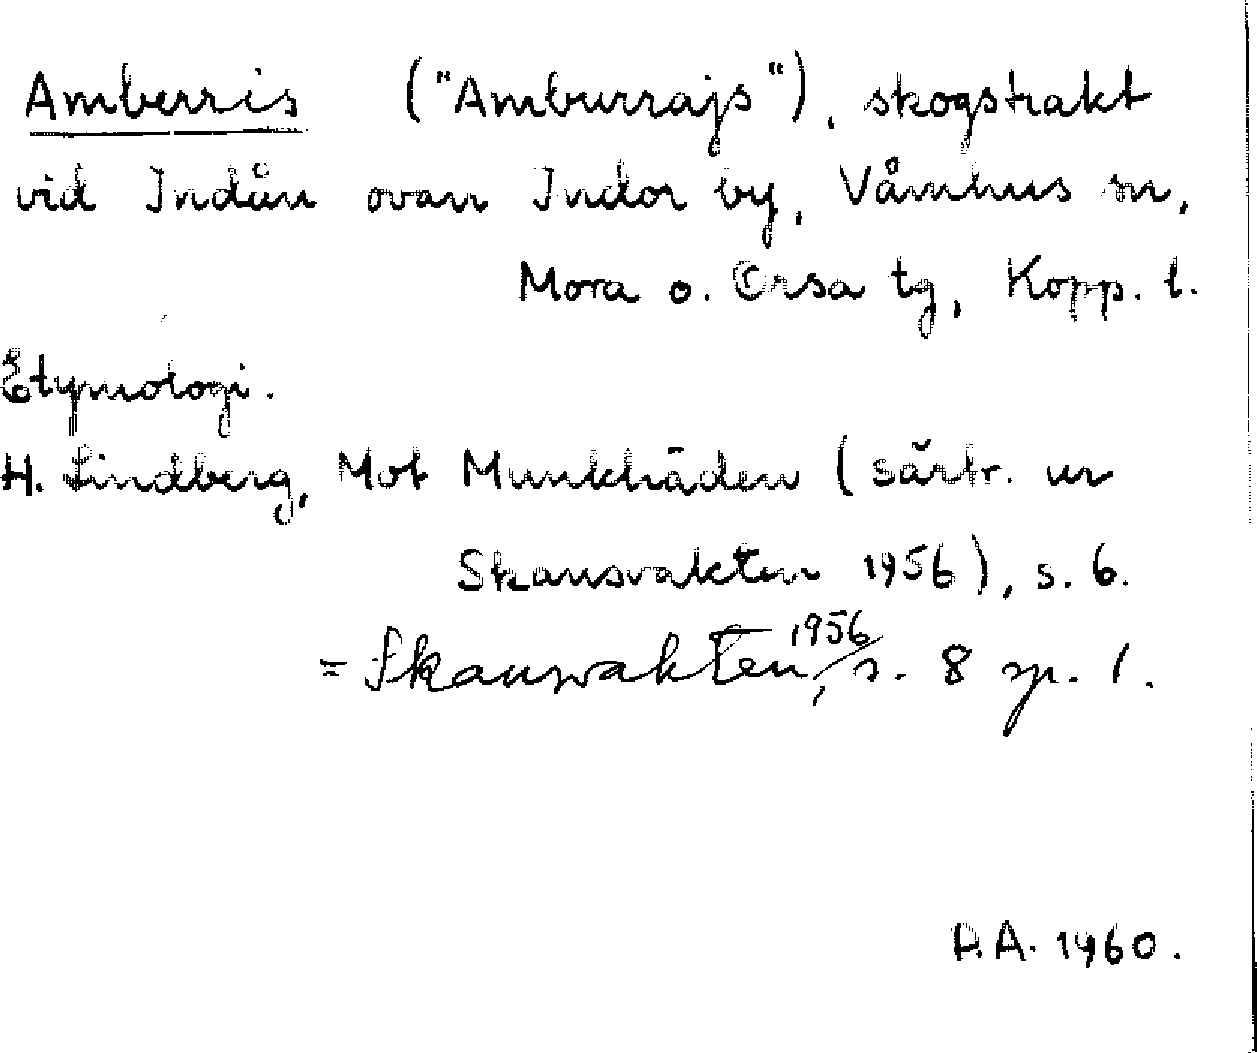 Amberris ("Amburrajs"), skogstrakt
vid Indån ovan Indor by, Våmhus sn,
Mora o. Orsa tg, Kopp. l.
Etymologi.
H. Lindberg, Mot Munkhäden (särtr. ur
Skansvakten 1956), s. 6.
= Skansvakten, 1956, s. 8 sp. 1.
A. 1960.